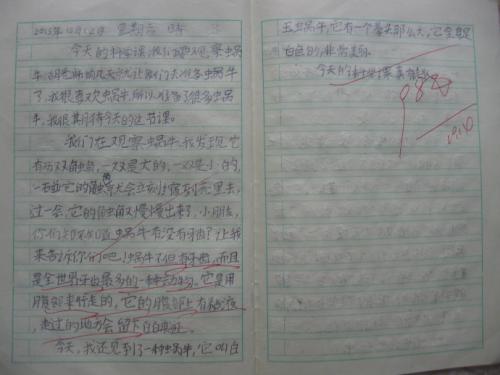 2015年10月12日 星期 晴
今天的科学课,我们要观察蜗
牛,胡老师前几天就让我们去准备蜗牛
了,我很喜欢蜗牛,所以准备了很多蜗
牛,我很期待今天的这节课。
我们在观察蜗牛,我发现它
有两对触角,一对是大的,一对是小的,
一碰它的触角它会立刻缩到壳里去,
过一会,它的触角又慢慢出来了,小朋友,
你们知不知道蜗牛有没有牙齿?让我
来告诉你们吧!蜗牛不但有牙齿,而且
是全世界牙齿最多的一种动物。它是用
腹部来行走的,它的腹部上有粘液,
走过的地方会留下白白的
今天,我还见到了一种蜗牛,它叫白
玉蜗牛,它有一个拳头那么大,它全身是
白色的,非常美丽。
今天的科学课真
98